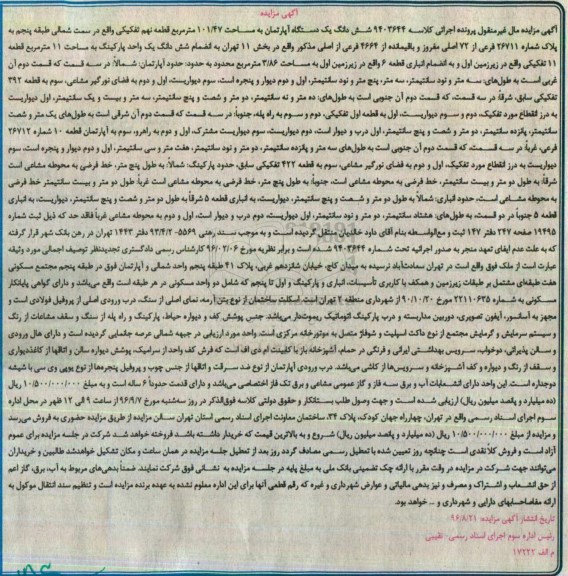 آگهی مزایده
آگهی مزایده مال غیرمنقول پرونده اجرائی کلاسه ۹۴۰۳۶۴۴ شش دانگ یک دستگاه آپارتمان به مساحت ۱۰۱/۴۷ مترمربع قطعه نهم تفکیکی واقع در سمت شمالی طبقه پنجم به
پلاک شماره ۲۶۷۱۱ فرعی از ۷۲ اصلی مفروز و باقیمانده از ۴۶۶۴ فرعی از اصلی مذکور واقع در بخش ۱۱ تهران به انضمام شش دانگ یک واحد پارکینگ به مساحت ۱۱ مترمربع قطعه
۱۱ تفکیکی واقع در زیرزمین اول و به انضمام انباری قطعه ۶ واقع در زیرزمین اول به مساحت ۳/۸۶ مترمربع محدود به حدود: حدود آپارتمان: شمالاً: در سه قسمت که قسمت دوم آن
غربی است به طول‌های: سه متر و نود سانتیمتر، سه متر، پنج متر و نود سانتیمتر، اول و دوم دیوار و پنجره است، سوم دیواریست، اول و دوم به فضای نورگیر مشاعی، سوم به قطعه ۳۹۲
تفکیکی سابق، شرقاً: در سه قسمت، که قسمت دوم آن جنوبی است به طول‌های: ده متر و نه سانتیمتر، دو متر و شصت و پنج سانتیمتر، سه متر و بیست و یک سانتیمتر، اول دیواریست
به درز انقطاع مورد تفکیک، دوم و سوم دیواریست، اول به قطعه اول تفکیکی، دوم و سوم به راه پله، جنوباً: در سه قسمت که قسمت دوم آن شرقی است به طول‌های یک متر و شصت
سانتیمتر، پانزده سانتیمتر، دو متر و شصت و پنج سانتیمتر، اول درب و دیوار است، دوم دیواریست، سوم دیواریست مشترک، اول و دوم به راهرو، سوم به آپارتمان قطعه ۱۰ شماره ۲۶۷۱۲
فرعی، غرباً: در سه قسمت، که قسمت دوم آن جنوبی است به طول‌های سه متر و پانزده سانتیمتر، دو متر و نود سانتیمتر، هفت متر و سی سانتیمتر، اول و دوم دیوار و پنجره است، سوم
دیواریست به درز انقطاع مورد تفکیک، اول و دوم به فضای نورگیر مشاعی، سوم به قطعه ۴۲۲ تفکیکی سابق، حدود پارکینگ: شمالاً: به طول پنج متر، خط فرضی به محوطه مشاعی است
شرقاً: به طول دو متر و بیست سانتیمتر، خط فرضی به محوطه مشاعی است، جنوباً: به طول پنج متر، خط فرضی به محوطه مشاعی است غرباً: طول دو متر و بیست سانتیمتر خط فرضی
به محوطه مشاعی است، حدود انباری: شمالاً به طول دو متر و شصت و پنج سانتیمتر، دیواریست، به انباری قطعه ۵ شرقاً به طول دو متر و شصت و پنج سانتیمتر، دیواریست، به انباری
قطعه ۵ جنوباً در دو قسمت، به طول‌های: هشتاد سانتیمتر، دو متر و نود سانتیمتر، اول دیواریست، دوم درب و دیوار است، اول و دوم به محوطه مشاعی غرباً فاقد حد که ذیل ثبت شماره
۱۹۴۹۵ صفحه ۲۴۷ دفتر ۱۴۷ ثبت و مع‌الواسطه بنام آقای داود خالدیان منتقل گردیده است و به موجب سند رهنی ۵۵۶۹-۹۳/۴/۲ دفتر ۱۴۴۳ تهران در رهن بانک شهر قرار گرفته
که به علت عدم ایفای تعهد منجر به صدور اجرائیه تحت شماره ۹۴۰۳۶۴۴ شده است و برابر نظریه مورخ ۹۶/۰۲/۰۶ کارشناس رسمی دادگستری تجدیدنظر توصیف اجمالی مورد وثیقه
عبارت است از ملک فوق واقع است در تهران سعادت‌آباد نرسیده به میدان کاج، خیابان شانزدهم غربی، پلاک ۴۱ طبقه پنجم واحد شمالی و آپارتمان فوق در طبقه پنجم مجتمع مسکونی
هفت طبقه‌ای مشتمل بر طبقات زیرزمین و همکف با کاربری تأسیسات، انباری و پارکینگ و اول تا پنجم که شامل دو واحد مسکونی در هر طبقه است واقع می‌باشد و دارای گواهی پایانکار
مسکونی به شماره ۲۲۱۱۰۶۳۵ مورخ ۹۰/۱۰/۲۰ از شهرداری منطقه ۲ تهران است اسکلت ساختمان از نوع بتن آرمه، نمای اصلی از سنگ، درب ورودی اصلی از پروفیل فولادی است و
مجهز به آسانسور، آیفون تصویری، دوربین مداربسته و درب پارکینگ اتوماتیک ریموت‌دار می‌باشد جنس پوشش کف و دیواره حیاط، پارکینگ و راه پله از سنگ و سقف مشاعات از رنگ
و سیستم سرمایش و گرمایش مجتمع از نوع داکت اسپلیت و شوفاژ متصل به موتورخانه مرکزی است. واحد مورد ارزیابی در جبهه شمالی عرصه جانمایی گردیده است و دارای هال ورودی
و سالن پذیرائی، دوخواب، سرویس بهداشتی ایرانی و فرنگی در حمام، آشپزخانه باز با کابینت ام دی اف است که فرش کف واحد از سرامیک، پوشش دیواره سالن و اتاقها از کاغذدیواری
و سقف از رنگ و دیواره و کف آشپزخانه و سرویس‌ها از کاشی می‌باشد. درب ورودی آپارتمان از نوع ضد سرقت و اتاقها از جنس چوب و پروفیل پنجره‌ها از نوع یوپی وی سی با شیشه
دوجداره است. این واحد دارای انشعابات آب و برق سه فاز و گاز عمومی مشاعی و برق تک فاز اختصاصی می‌باشد و دارای قدمت حدوداً ۶ ساله است و به مبلغ ۱۰/۵۰۰/۰۰۰/۰۰۰ ریال
(ده میلیارد و پانصد میلیون ریال) ارزیابی شده است و جهت وصول طلب بستانکار و حقوق دولتی کلاسه فوق‌الذکر در روز سه‌شنبه مورخ ۹۶/۹/۷ از ساعت ۹ الی ۱۲ ظهر در محل اداره
سوم اجرای اسناد رسمی واقع در تهران، چهارراه جهان کودک، پلاک ۲۴، ساختمان معاونت اجرای اسناد رسمی استان تهران سالن مزایده از طریق مزایده حضوری به فروش می‌رسد
و مزایده از مبلغ ۱۰/۵۰۰/۰۰۰/۰۰۰ ریال (ده میلیارد و پانصد میلیون ریال) شروع و به بالاترین قیمت که خریدار داشته باشد فروخته خواهد شد شرکت در جلسه مزایده برای عموم
آزاد است و فروش کلاً نقدی است چنانچه روز تعیین شده با تعطیل رسمی مصادف گردد روز بعد از تعطیل جلسه مزایده در همان ساعت و مکان تشکیل خواهدشد طالبین و خریداران
می‌توانند جهت شرکت در مزایده در وقت مقرر با ارائه چک تضمینی بانک ملی به مبلغ پایه در جلسه مزایده به نشانی فوق شرکت نمایند. ضمناً بدهی‌های مربوط به آب، برق، گاز اعم
از حق انشعاب و اشتراک و مصرف و نیز بدهی مالیاتی و عوارض شهرداری و غیره که رقم قطعی آنها برای این اداره معلوم نشده به عهده برنده مزایده است و تنظیم سند انتقال موکول به
ارائه مفاصاحسابهای دارایی و شهرداری و ... خواهد بود.
تاریخ انتشار آگهی مزایده: ۹۶/۸/۲۱
رئیس اداره سوم اجرای اسناد رسمی - نقیبی
م الف ۱۷۲۲۲